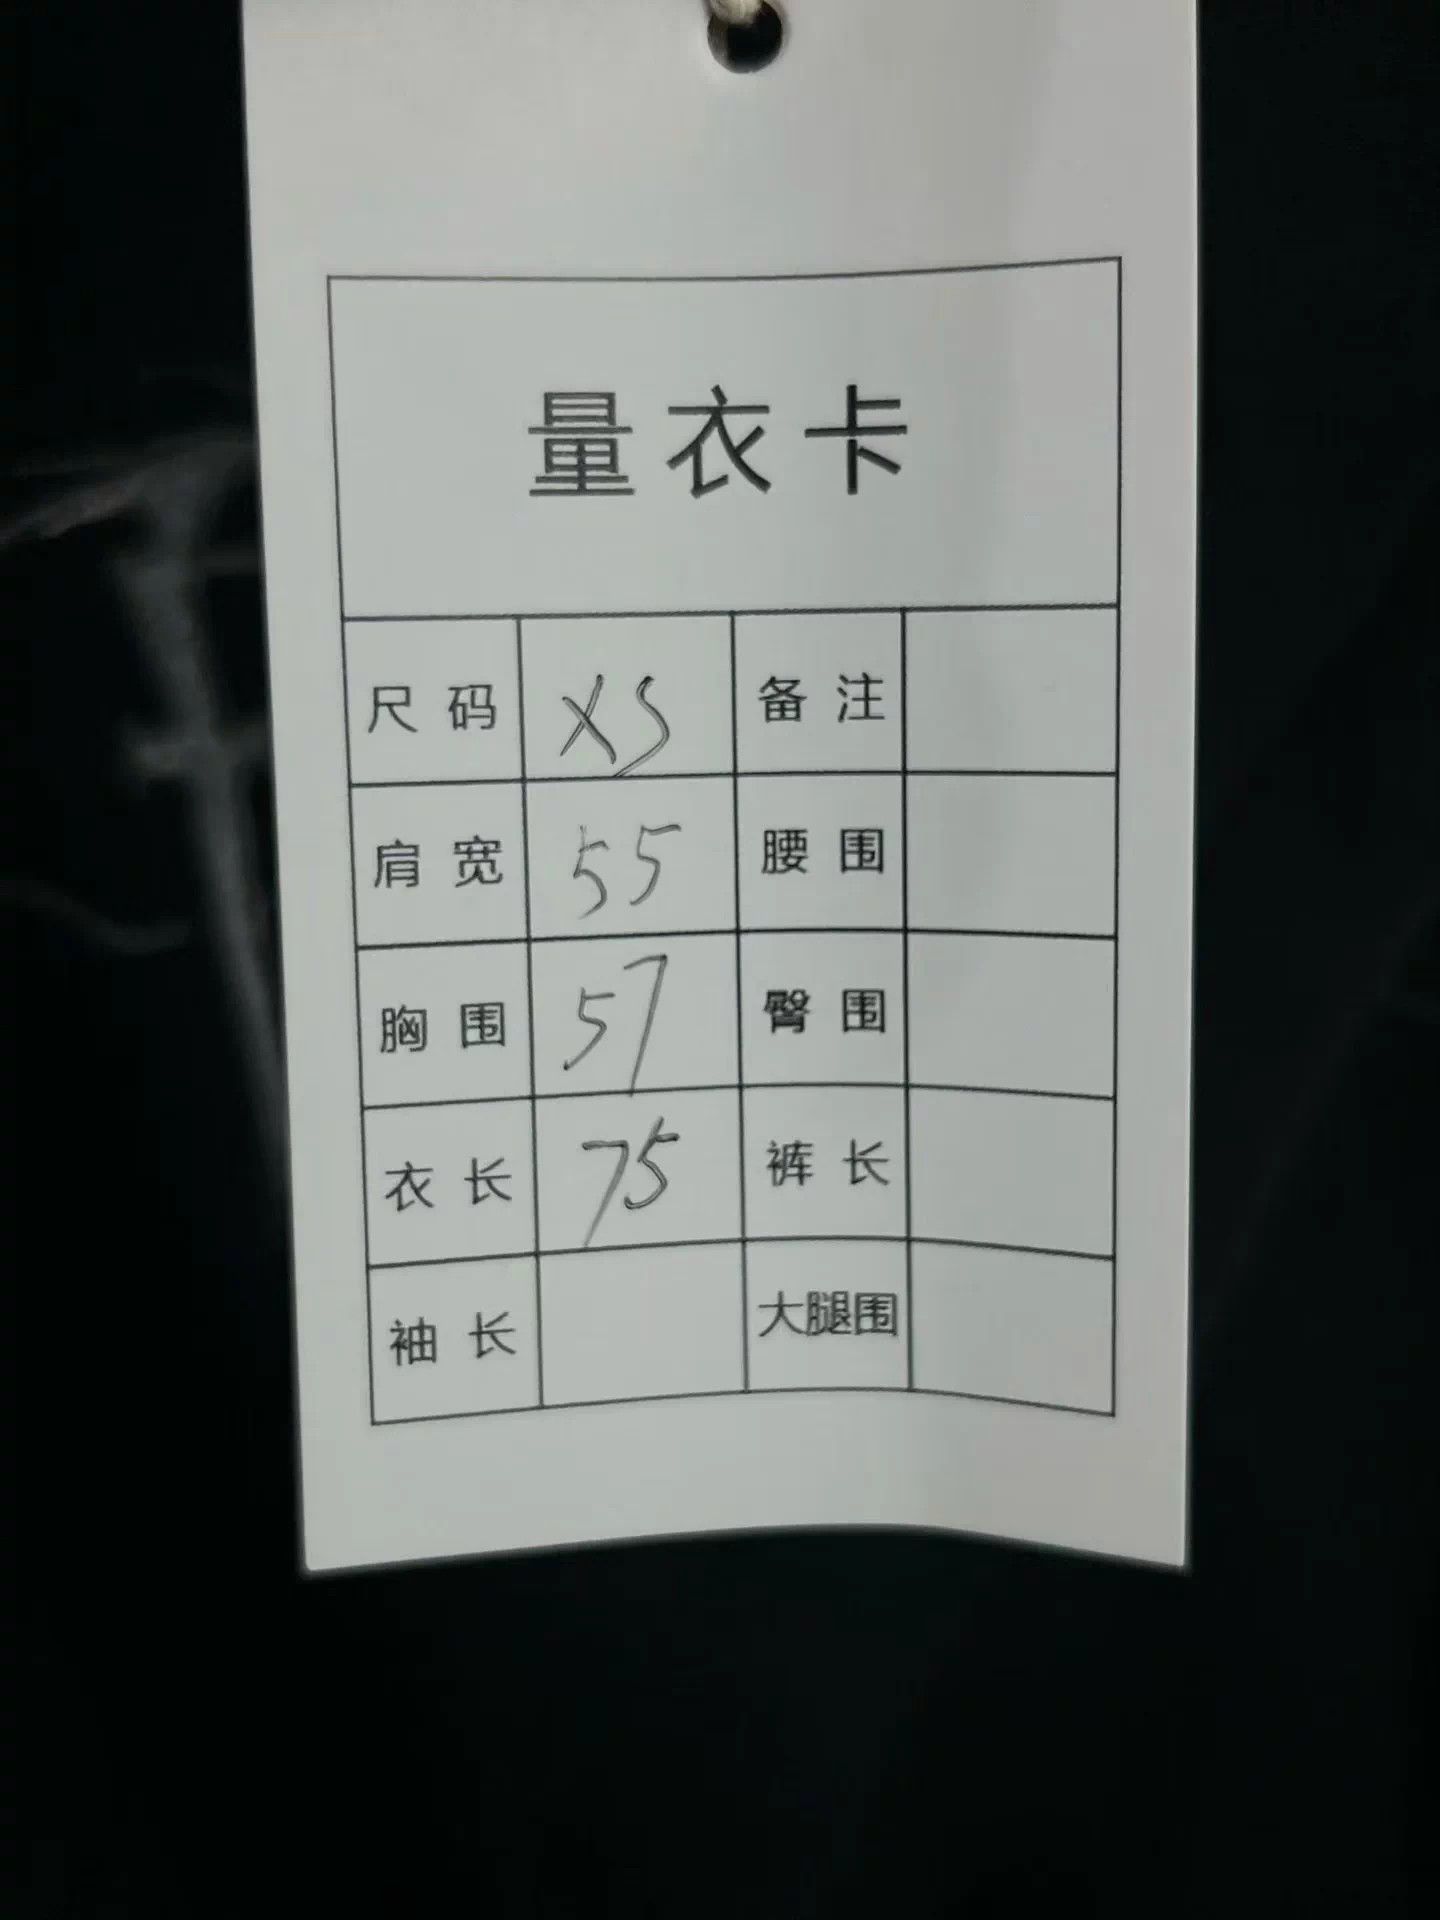 量衣卡
尺码 XS 备注
肩宽 55 腰围
胸围 57 臀围
衣长 75 裤长
袖长 大腿围